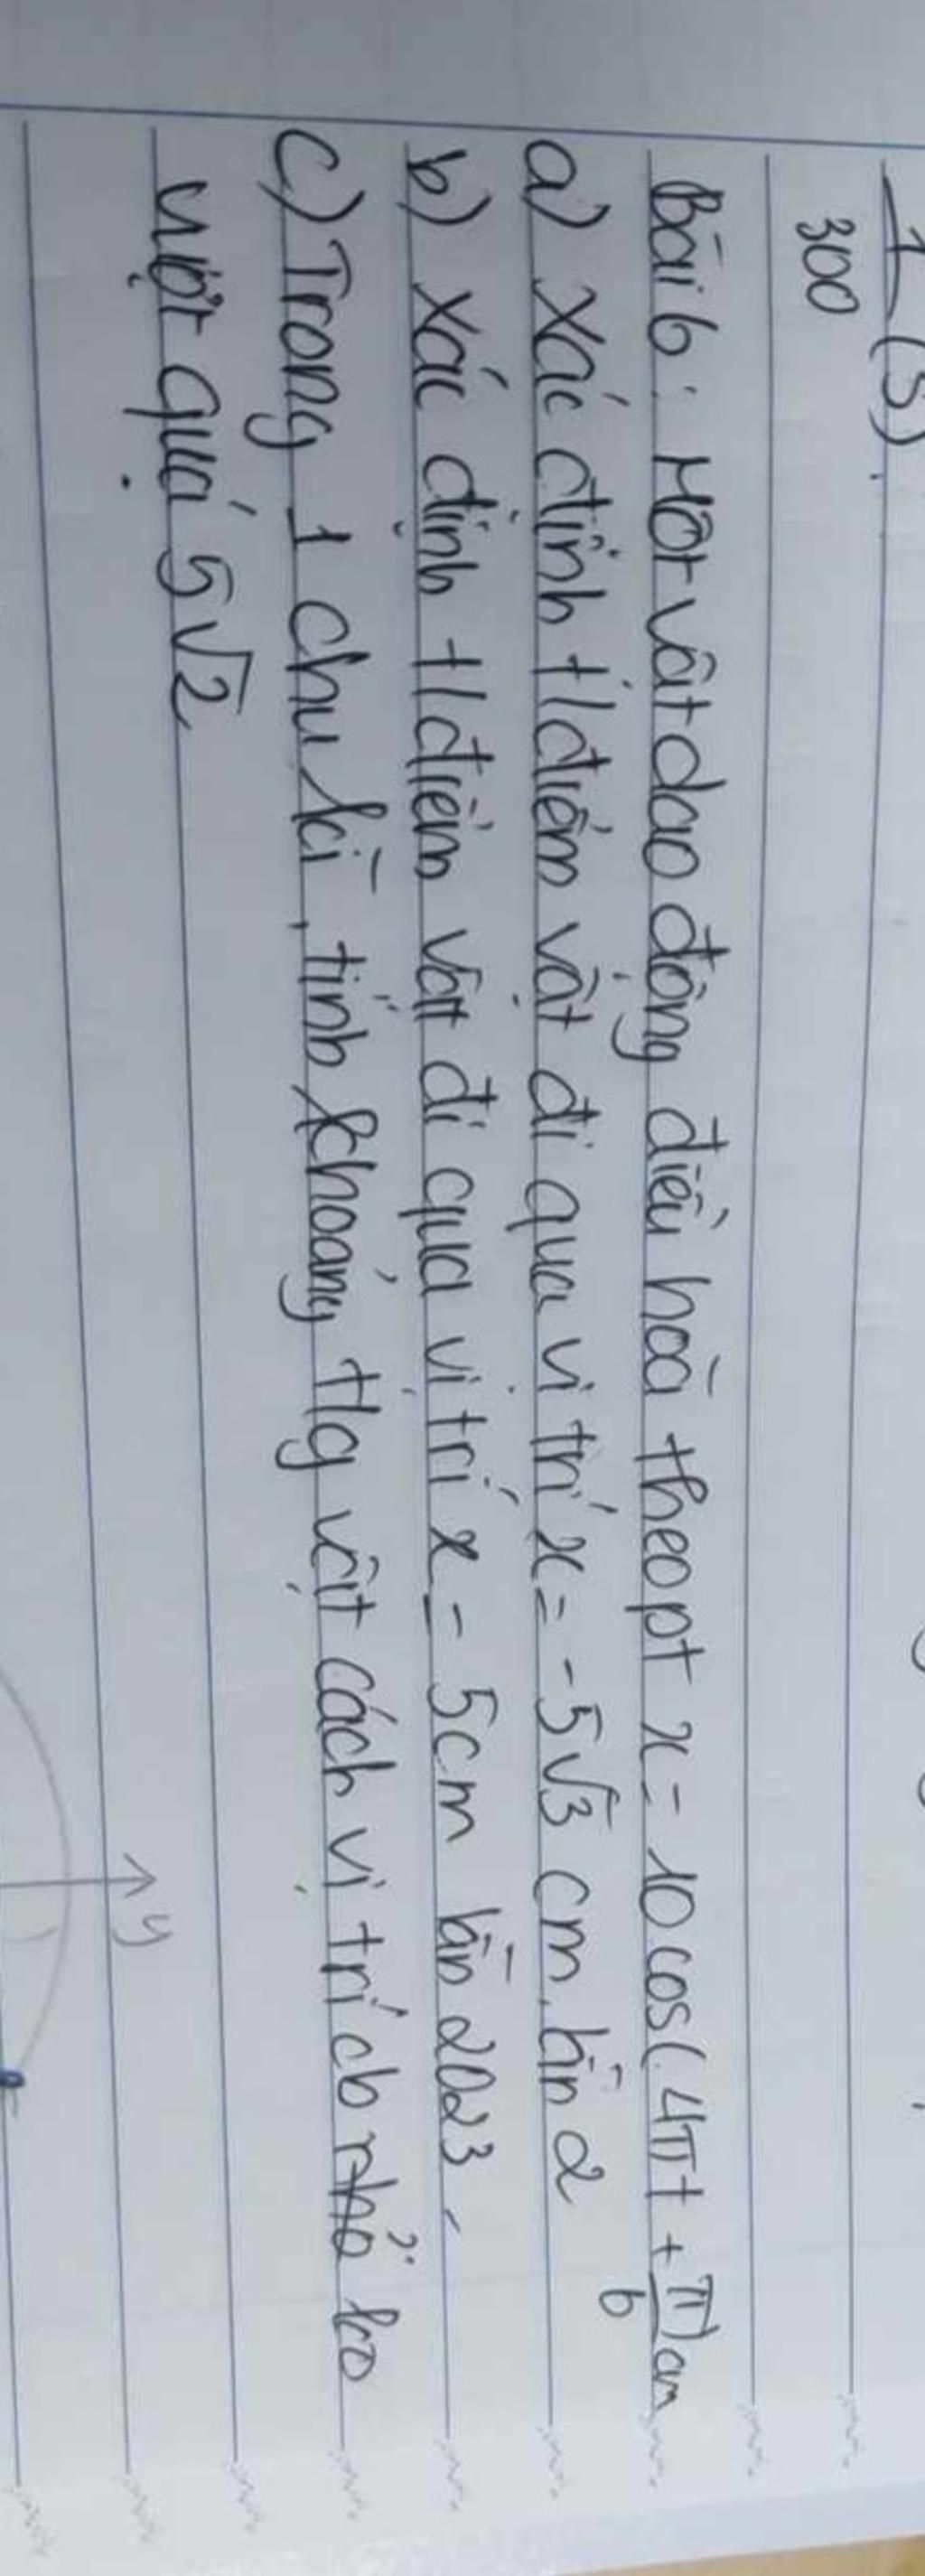 1/300 (s).
Bài 6: Một vật dao động điều hoà theo pt x = 10 cos(4πt + π/6) cm
a) xác định t/điểm vật đi qua vị trí x = -5√3 cm lần 2
b) xác định t/điểm vật đi qua vị trí x = 5cm lần 2023
c) Trong 1 chu kì, tính khoảng t/g vật cách vị trí cb nhỏ ko
vượt quá 5√2
y